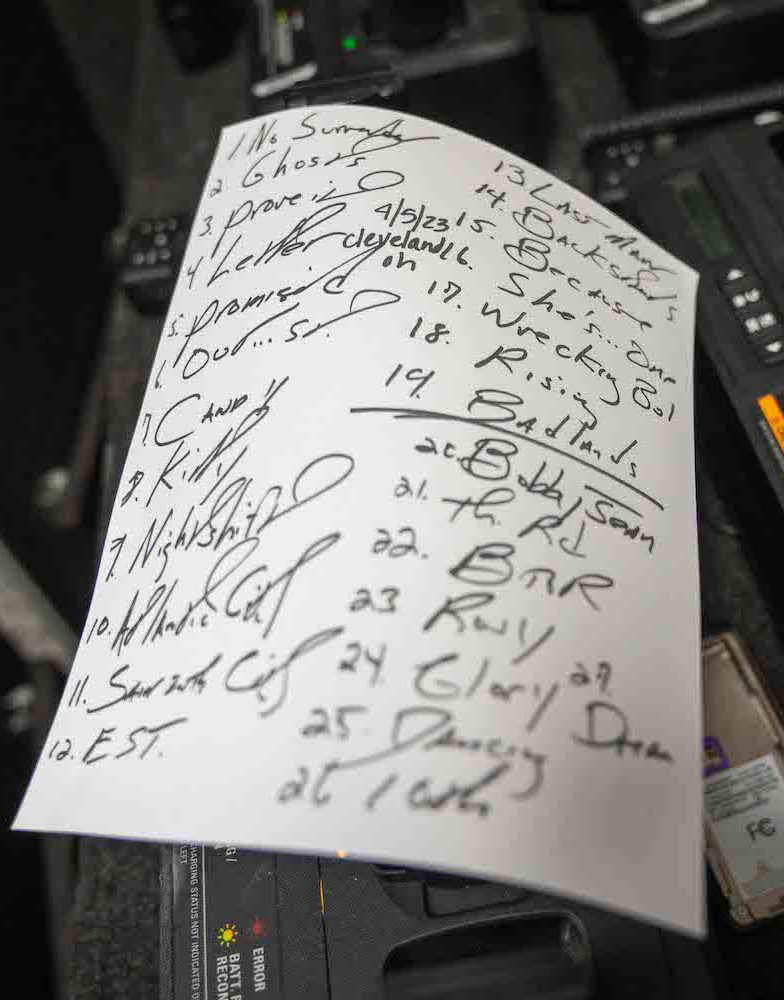 1 No Surrender
2 Ghosts
3. Prove it
4 Letter
5. Promised
6. Out... St.
7. Candy
8. Kitty
9. Nightshift
10. Atlantic City
11. City
12. EST.
4/5/23
Cleveland
oh
13 Last Man
14. Backstreets
15. Because
16. She's... One
17. Wrecking Bal
18. Rising
19. Badlands
20. Bobby Jean
21. Th. Rd
22. BTR
23 Rosy
24. Glory
25. Dancing
26
27. Dream
ERROR
BATT. 
RECON
CHARGING STATUS NOT INDICATED
LEFT
FC